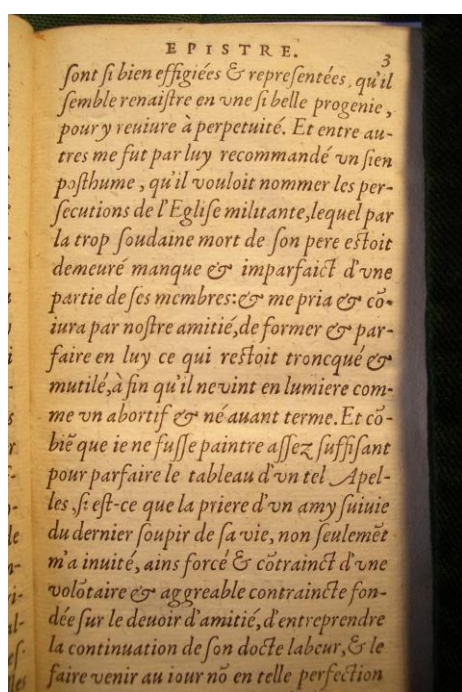 EPISTRE.
3
ſont ſi bien effigiées & repreſentées, qu'il
ſemble renaiſtre en vne ſi belle progenie,
pour y reuiure à perpetuité. Et entre au-
tres me fut par luy recommandé vn ſien
poſthume, qu'il vouloit nommer les per-
ſecutions de l'Egliſe militante, lequel par
la trop ſoudaine mort de ſon pere eſtoit
demeuré manque & imparfaict d'vne
partie de ſes membres: & me pria & cõ-
iura par noſtre amitié, de former & par-
faire en luy ce qui reſtoit troncqué &
mutilé, à fin qu'il ne vint en lumiere com-
me vn abortif & né auant terme. Et cõ-
biẽ que ie ne fuſſe paintre aſſez ſuffiſant
pour parfaire le tableau d'vn tel Apel-
les, ſi eſt-ce que la priere d'vn amy ſuiuie
du dernier ſoupir de ſa vie, non ſeulemẽt
m'a inuité, ains forcé & cõtrainct d'vne
volõtaire & aggreable contraincte fon-
dée ſur le deuoir d'amitié, d'entreprendre
la continuation de ſon docte labeur, & le
faire venir au iour nõ en telle perfection